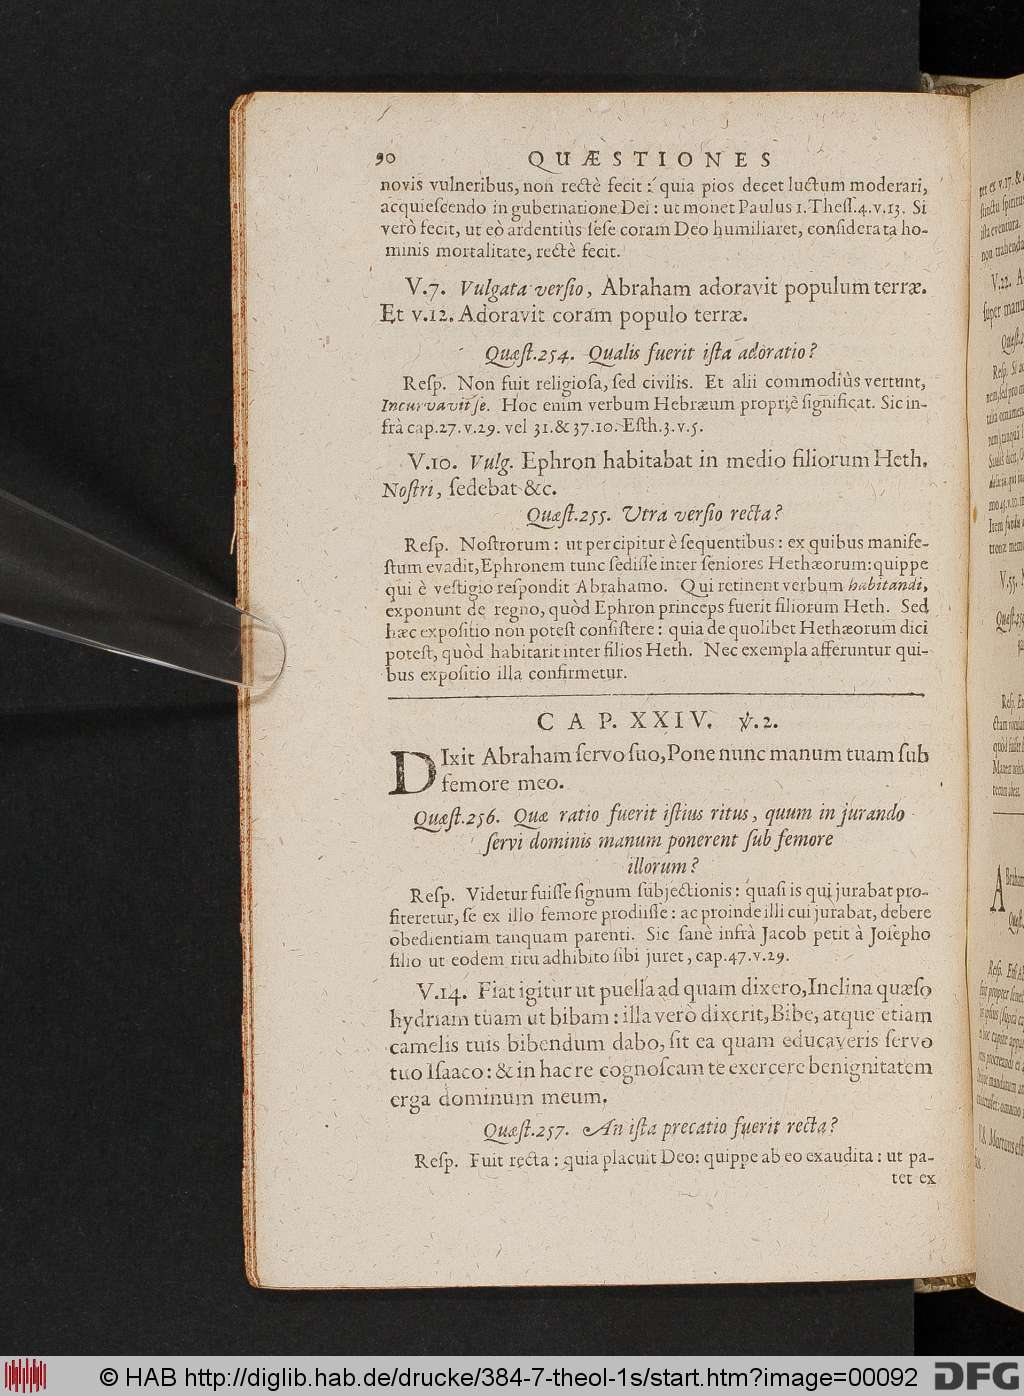 90 QUÆSTIONES
novis vulneribus, non rectè fecit: quia pios decet luctum moderari,
acquieſcendo in gubernatione Dei: ut monet Paulus 1. Theſſ. 4. v. 13. Si
verò fecit, ut eò ardentiùs ſeſe coram Deo humiliaret, conſiderata ho-
minis mortalitate, rectè fecit.
V.7. Vulgata verſio, Abraham adoravit populum terræ.
Et v.12. Adoravit coram populo terræ.
Quæſt.254. Qualis fuerit iſta adoratio?
Reſp. Non fuit religioſa, ſed civilis. Et alii commodiùs vertunt,
Incurvavit ſe. Hoc enim verbum Hebræum propriè ſignificat. Sic in-
frà cap.27.v.29. vel 31.& 37.10. Eſth.3.v.5.
V.10. Vulg. Ephron habitabat in medio filiorum Heth.
Noſtri, ſedebat &c.
Quæſt.255. Utra verſio recta?
Reſp. Noſtrorum: ut percipitur è ſequentibus: ex quibus manife-
ſtum evadit, Ephronem tunc ſediſſe inter ſeniores Hethæorum: quippe
qui è veſtigio reſpondit Abrahamo. Qui retinent verbum habitandi,
exponunt de regno, quòd Ephron princeps fuerit filiorum Heth. Sed
hæc expoſitio non poteſt conſiſtere: quia de quolibet Hethæorum dici
poteſt, quòd habitarit inter filios Heth. Nec exempla afferuntur qui-
bus expoſitio illa confirmetur.
CAP. XXIV. ℣.2.
DIxit Abraham ſervo ſuo, Pone nunc manum tuam ſub
femore meo.
Quæſt.256. Quæ ratio fuerit iſtius ritus, quum in jurando
ſervi dominis manum ponerent ſub femore
illorum?
Reſp. Videtur fuiſſe ſignum ſubjectionis: quaſi is qui jurabat pro-
fiteretur, ſe ex illo femore prodiiſſe: ac proinde illi cui jurabat, debere
obedientiam tanquam parenti. Sic ſanè infrà Jacob petit à Joſepho
filio ut eodem ritu adhibito ſibi juret, cap.47.v.29.
V.14. Fiat igitur ut puella ad quam dixero, Inclina quæſo
hydriam tuam ut bibam: illa verò dixerit, Bibe, atque etiam
camelis tuis bibendum dabo, ſit ea quam educaveris ſervo
tuo Iſaaco: & in hac re cognoſcam te exercere benignitatem
erga dominum meum.
Quæſt.257. An iſta precatio fuerit recta?
Reſp. Fuit recta: quia placuit Deo: quippe ab eo exaudita: ut pa-
tet ex
© HAB http://diglib.hab.de/drucke/384-7-theol-1s/start.htm?image=00092
DFG